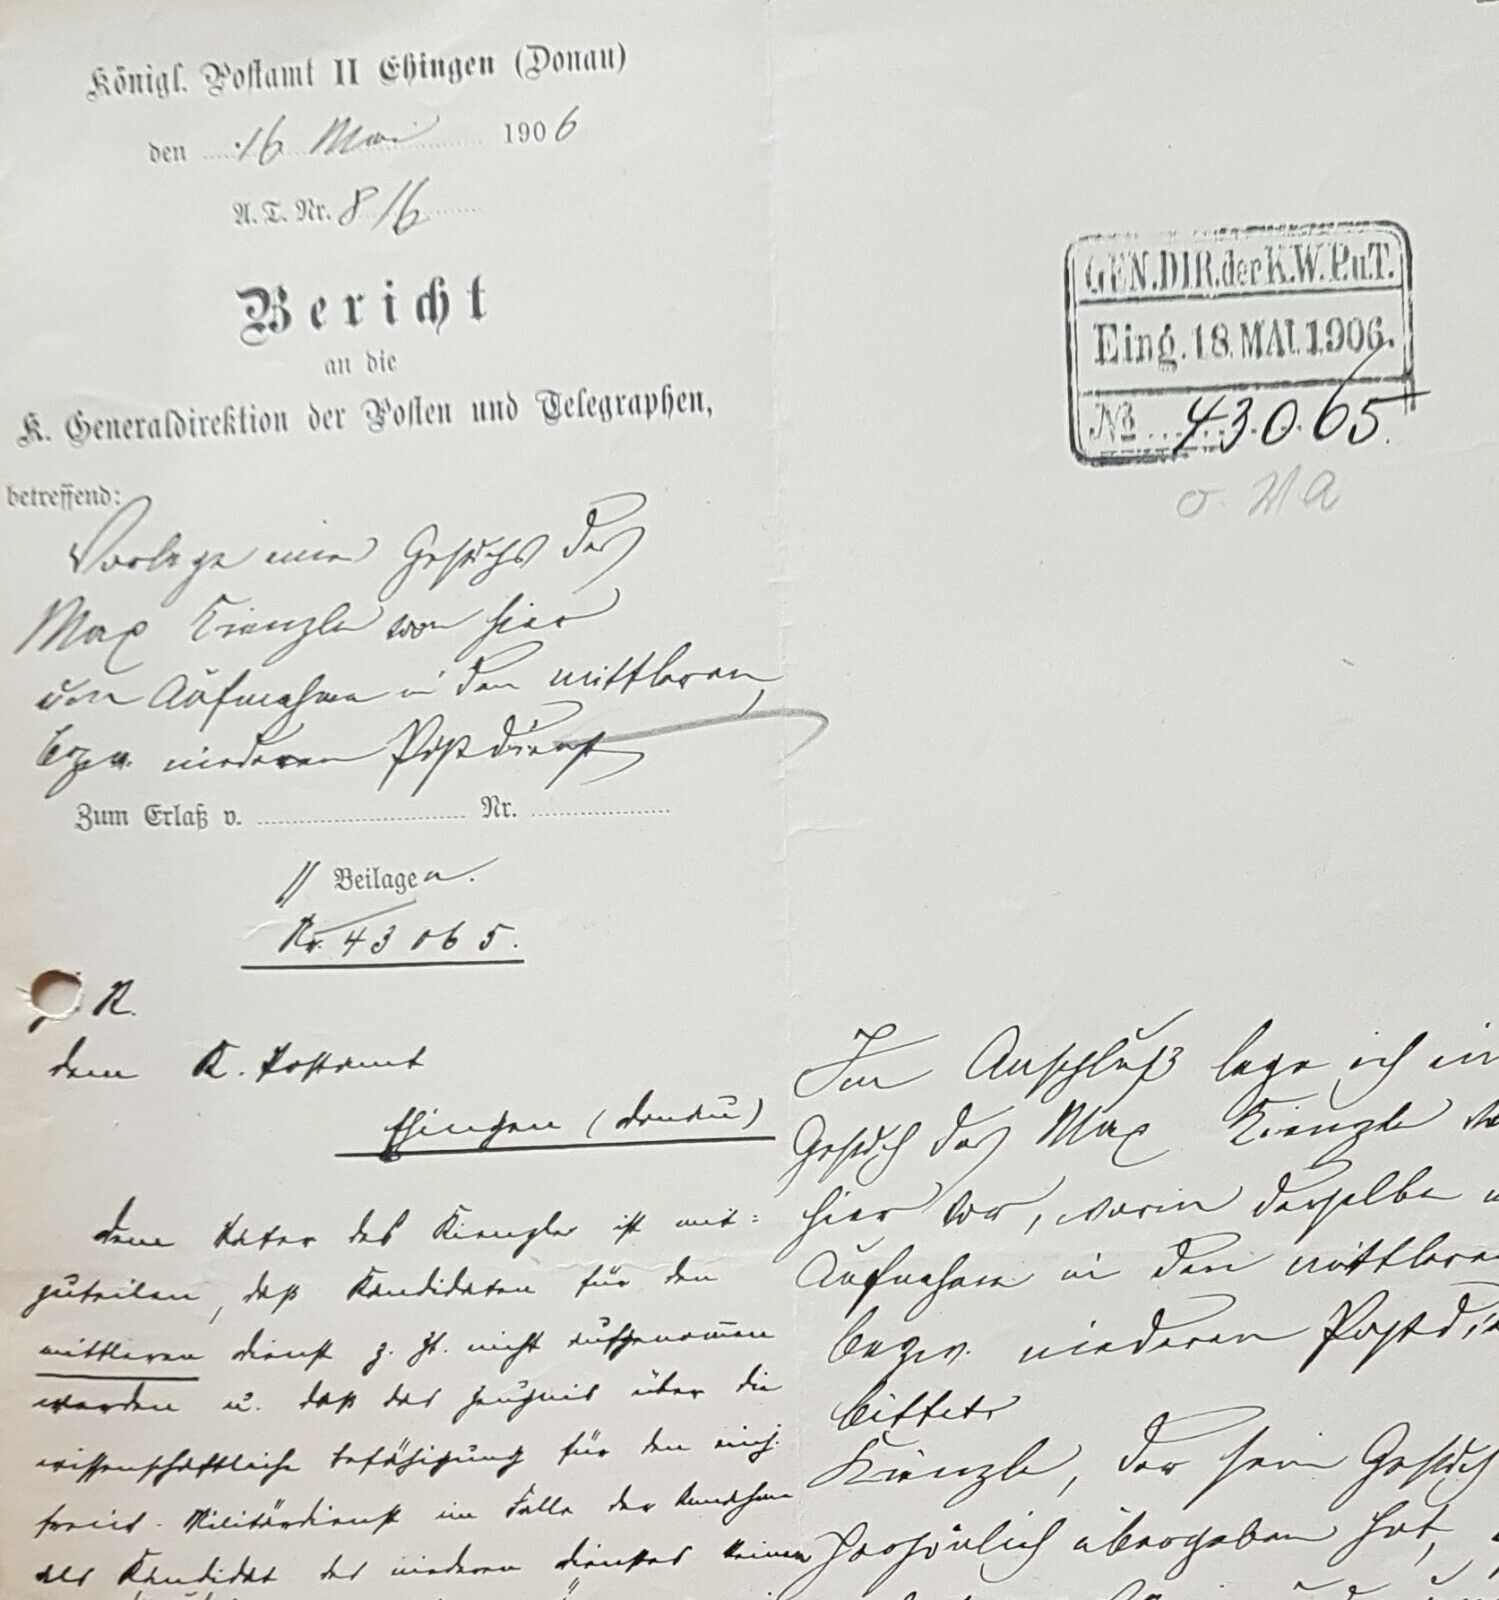 Königl. Postamt II Ehingen (Donau)
den 16 Mai 1906
A. T. Nr. 816
Bericht
an die
K. Generaldirektion der Posten und Telegraphen,
betreffend:
Vorlage eines Gesuchs des
Max Kienzle von hier
um Aufnahme in den mittleren
bezw. niederen Postdienst
Zum Erlaß v. Nr.
11 Beilagen.
Nr. 43065.
GEN.DIR.der K.W.P.u.T.
Eing. 18. MAI. 1906.
No 43065.
R.
dem K. Postamt
Ehingen (Donau)
Dem Vater des Kienzle ist mit=
zuteilen, daß Kandidaten für den
mittleren Dienst z. Zt. nicht aufgenommen
werden u. daß das Zeugnis über die
wissenschaftliche Befähigung für den einj.
freiw. Militärdienst im Falle der Annahme
als Kandidat des niederen Dienstes keinen
Im Anschluß lege ich ein
Gesuch des Max Kienzle von
hier vor, worin derselbe um
Aufnahme in den mittleren
bezw. niederen Postdienst
bittet.
Kienzle, der sein Gesuch
persönlich übergeben hat,